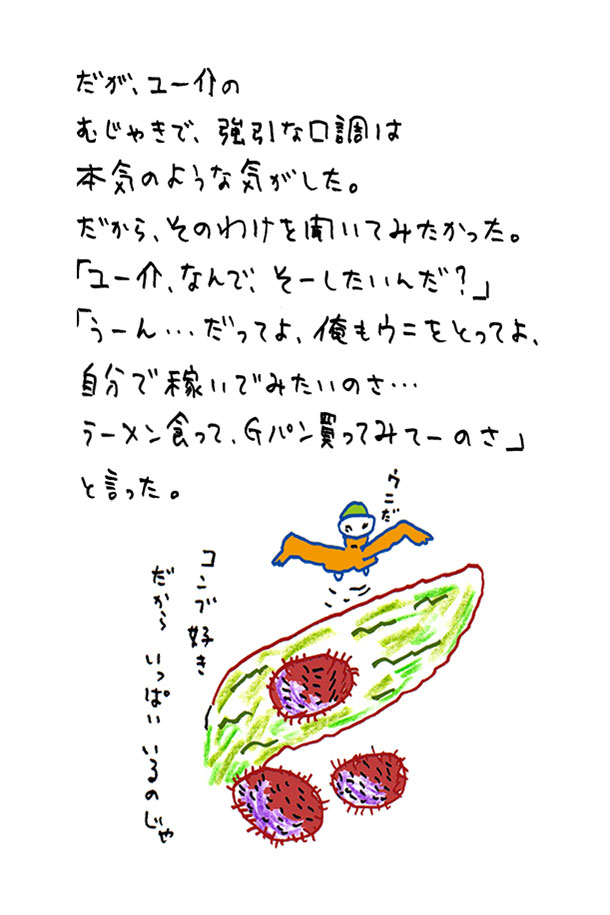 だが、ユー介の
むじゃきで、強引な口調は
本気のような気がした。
だから、そのわけを聞いてみたかった。
「ユー介、なんで、そーしたいんだ？」
「うーん…だってよ、俺もウニをとってよ、
自分で稼いでみたいのさ…
ラーメン食って、Gパン買ってみてーのさ」
と言った。
ウニだ
コンブ好き
だから いっぱい いるのじゃ